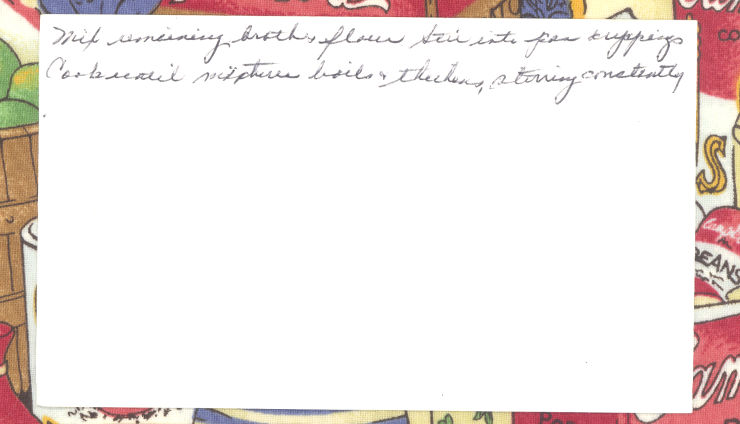 Mix remaining broth & flour Stir into pan drippings
Cook until mixture boils & thickens, stirring constantly
CO
S
Campbell's
BEANS